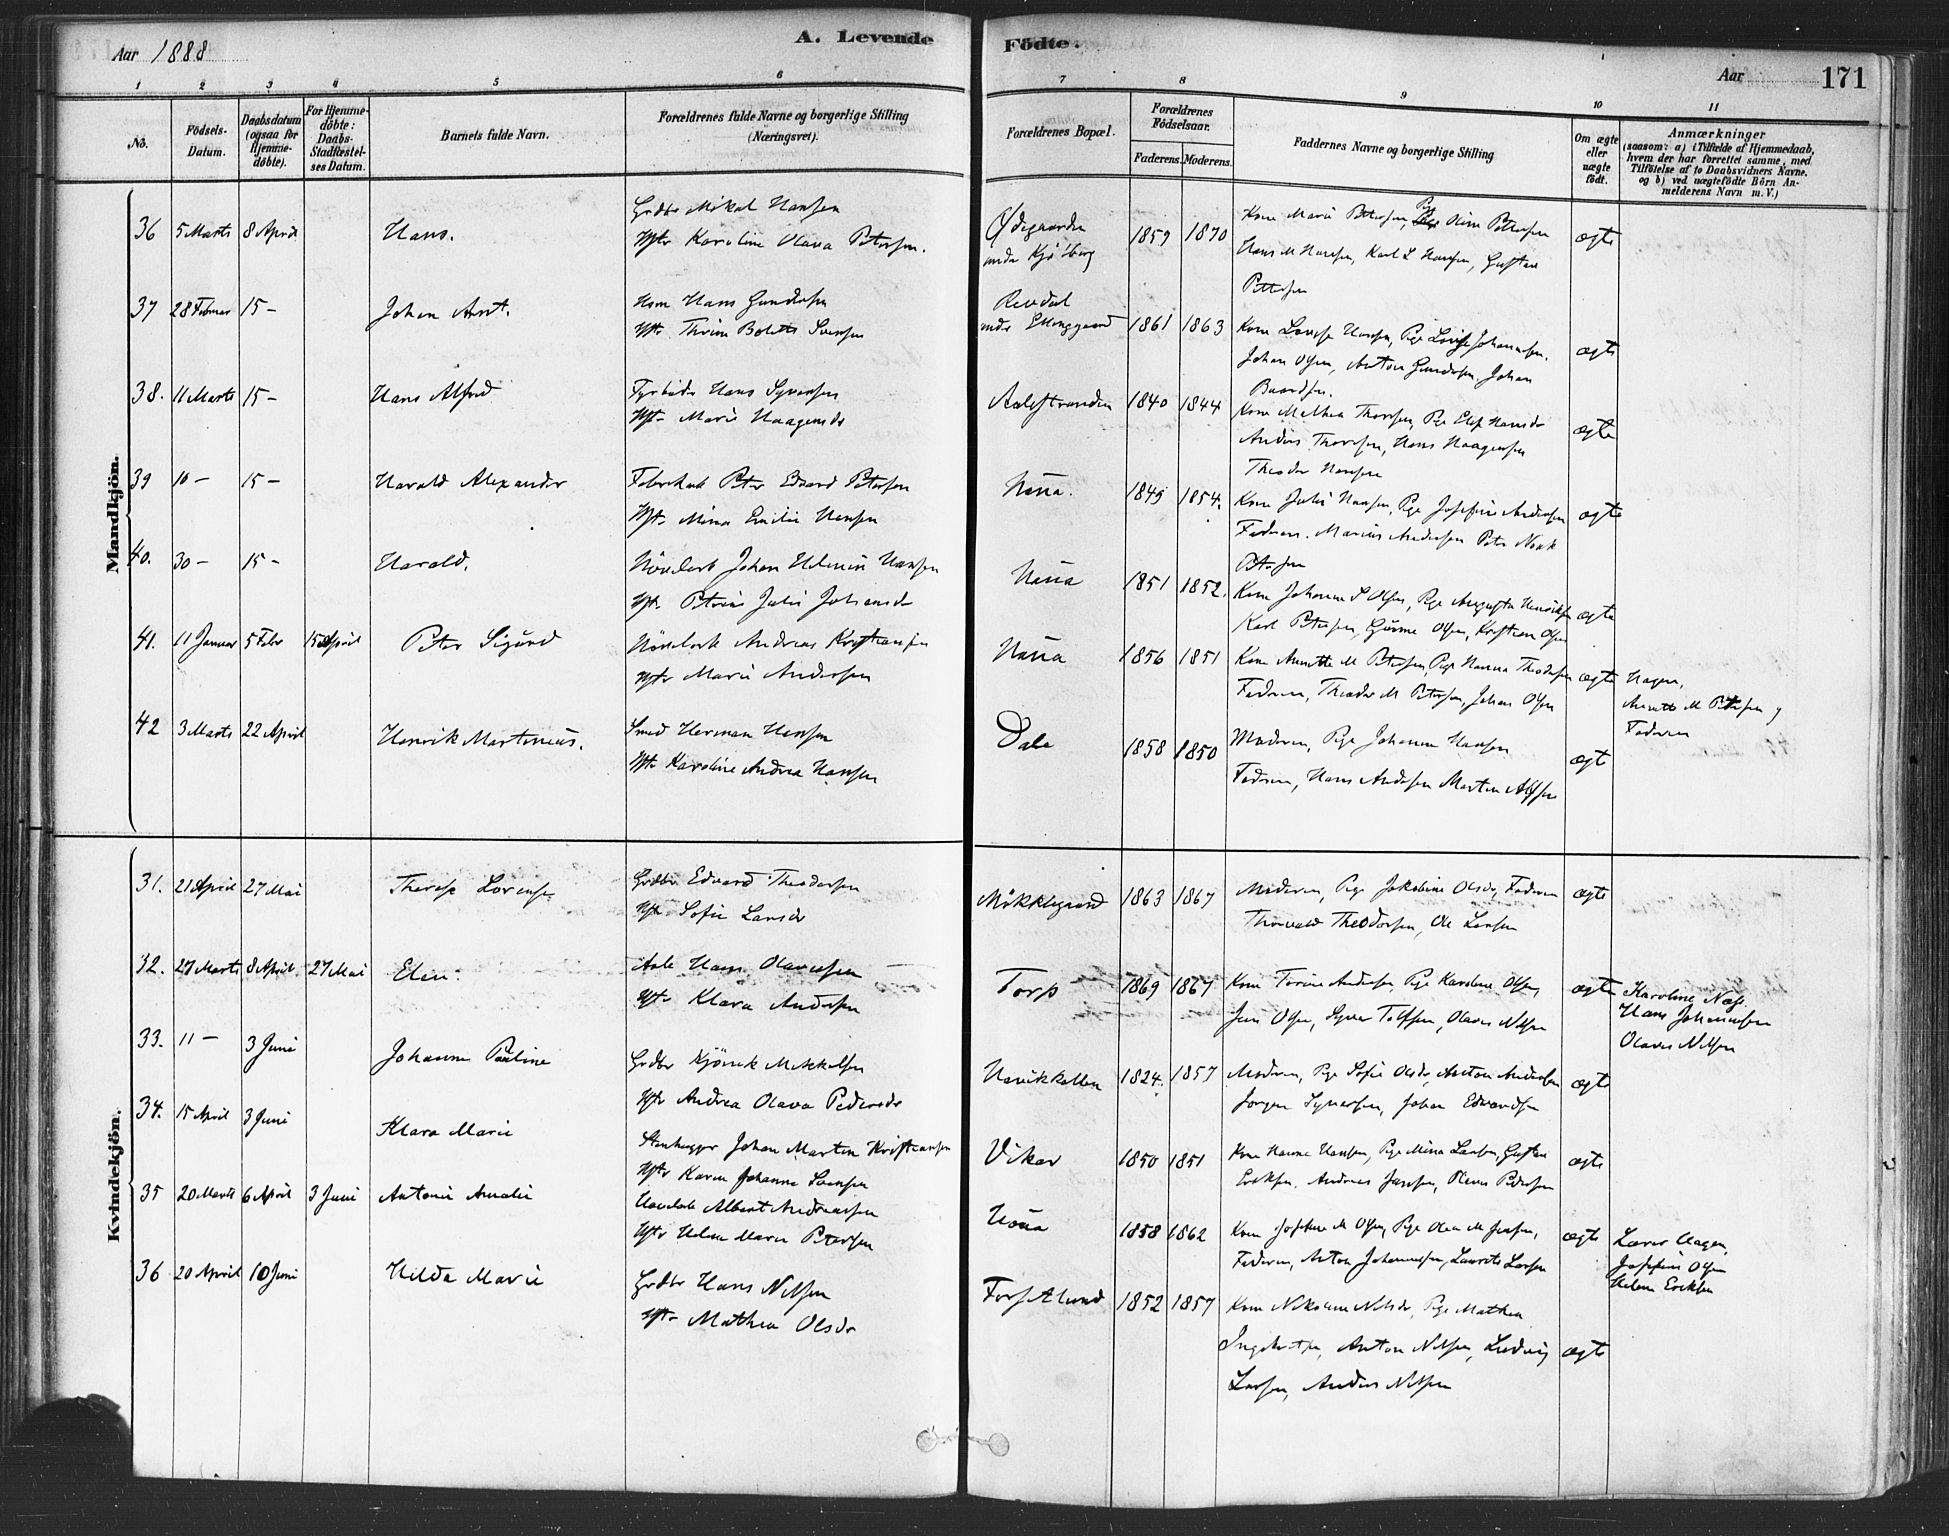 Aar 1888
A. Levende
Födte.
Aar
171
1 2 3 4 5 6 7 8 9 10 11
No.
Födsels-Datum.
Daabsdatum (ogsaa for Hjemme-döbte).
For Hjemme-döbte: Daabs-Stadfæstel-ses Datum.
Barnets fulde Navn.
Forældrenes fulde Navne og borgerlige Stilling (Næringsvei).
Forældrenes Bopæl.
Forældrenes Födselsaar.
Faderens. Moderens.
Faddernes Navne og borgerlige Stilling
Om ægte eller uægte födt.
Anmærkninger
(saasom: a) i Tilfælde af Hjemmedaab,
hvem der har forrettet samme, med
Tilföielse af to Daabsvidners Navne,
og b) ved uægtefödte Börn An-
melderens Navn m. V.)
Mandkjön.
36 5 Marts 8 April Hans. Grdbr Mikal Hansen
Hstr Karoline Olava Petersen.
Ødegaarden 1859 1870 Kone Marie Pettersen, Pige Oline Pettersen ægte
under Kjølberg Hans M Hansen, Karl L Hansen, Gustav
Pettersen
37 28 Februar 15 – Johan Arnt. Hsm Hans Gundersen
Hstr Bolette Svensen
1861 1863 Kone Lovise Hansen, Pige Lovise Johannesen. ægte
Johan Olsen, Anton Gundersen, Johan
Baardsen.
38. 11 Marts 15 – Hans Alfred Hans Syversen
Hstr Marie Haagensdr
Aalestranden 1840 1844 Kone Mathea Thoresen, Pige Hansdr ægte
Anders Thoresen, Hans Haagensen
Theodor Hansen
39 10 – 15 – Harald Alexander Peter Edvard Petersen
Hstr Mina Emilie Hansen
Nøsa. 1849 1854. Kone Julie Hansen, Pige Josefine Andersen ægte
Faderen. Marius Andersen Peter
Petersen
40. 30 – 15 – Harald. Johan Hansen
Hstr Julie Johansdr
Nøsa 1851 1852. Kone Johanne S Olsen, Pige Augusta Henriksen ægte
Karl Petersen, Olsen, Kristian Olsen
41. 11 Januar 5 Febr 15 April Peter Sigurd Andreas Kristiansen
Hstr Marie Andersen
Nøsa 1856 1851 Kone Annette M Petersen, Pige Hanna Theodorsen ægte Hagen,
Faderen, Theodor M Petersen, Johan Olsen Annette M Petersen g
Faderen
42 3 Marts 22 April Henrik Martinius. Smed Herman Hansen
Hstr Karoline Andrea Hansen
Dale 1858 1850 Moderen, Pige Johanne Hansen ægte
Faderen, Hans Andersen Martin
Kvindekjön.
31. 21 April 27 Mai Therese Lorense Grdbr Edvard Theodorsen
Hstr Sofie Larsdr
Mökklegaard 1863 1867 Moderen, Pige Jakobine Olsdr, Faderen ægte
Thorvald Theodorsen, Ole Larsen
32. 27 Marts 8 April. 27 Mai Elin. Hans Olavesen
Hstr Klara Andersen
Torp 1869 1867 Kone Torine Andersen, Pige Karoline Olsen, ægte Karoline Næs.
Jens Olsen, Syver Tolfsen, Olaves Nilsen Hans Johannesen
Olaves Nilsen
33. 11 – 3 Juni Johanne Pauline Grdbr Mikkelsen
Hstr Andrea Olava Pedersdr
1824. 1857 Moderen, Pige Sofie Olsdr, Anton Andersen ægte
Jørgen Syversen, Johan Edvardsen
34. 15 April 3 Juni Klara Marie Stenhugger Johan Martin Kristiansen
Hstr Karen Johanne Larsen
Viker 1850 1851 Kone Hanne Hansen, Pige Mina Larsen, Gustav ægte
Eriksen. Andreas Jansen, Petersen
35 20 Marts 6 April 3 Juni Antonie Amalie Albert Andreassen
Hstr Helene Marie Petersen
Nøsa 1858 1862 Kone Josefine M Olsen, Pige Olea M Jensen, ægte Lærer Hagen,
Faderen, Anton Johannesen, Laurits Larsen Josefine Olsen
Helene Eriksen
36 20 April 10 Juni Hilda Marie Grdbr Hans Nilsen
Hstr Mathea Olsdr
1852 1857 Kone Nikoline Nilsdr, Pige Mathea
Anton Nilsen, Ludvig ægte
Larsen, Anders Nilsen